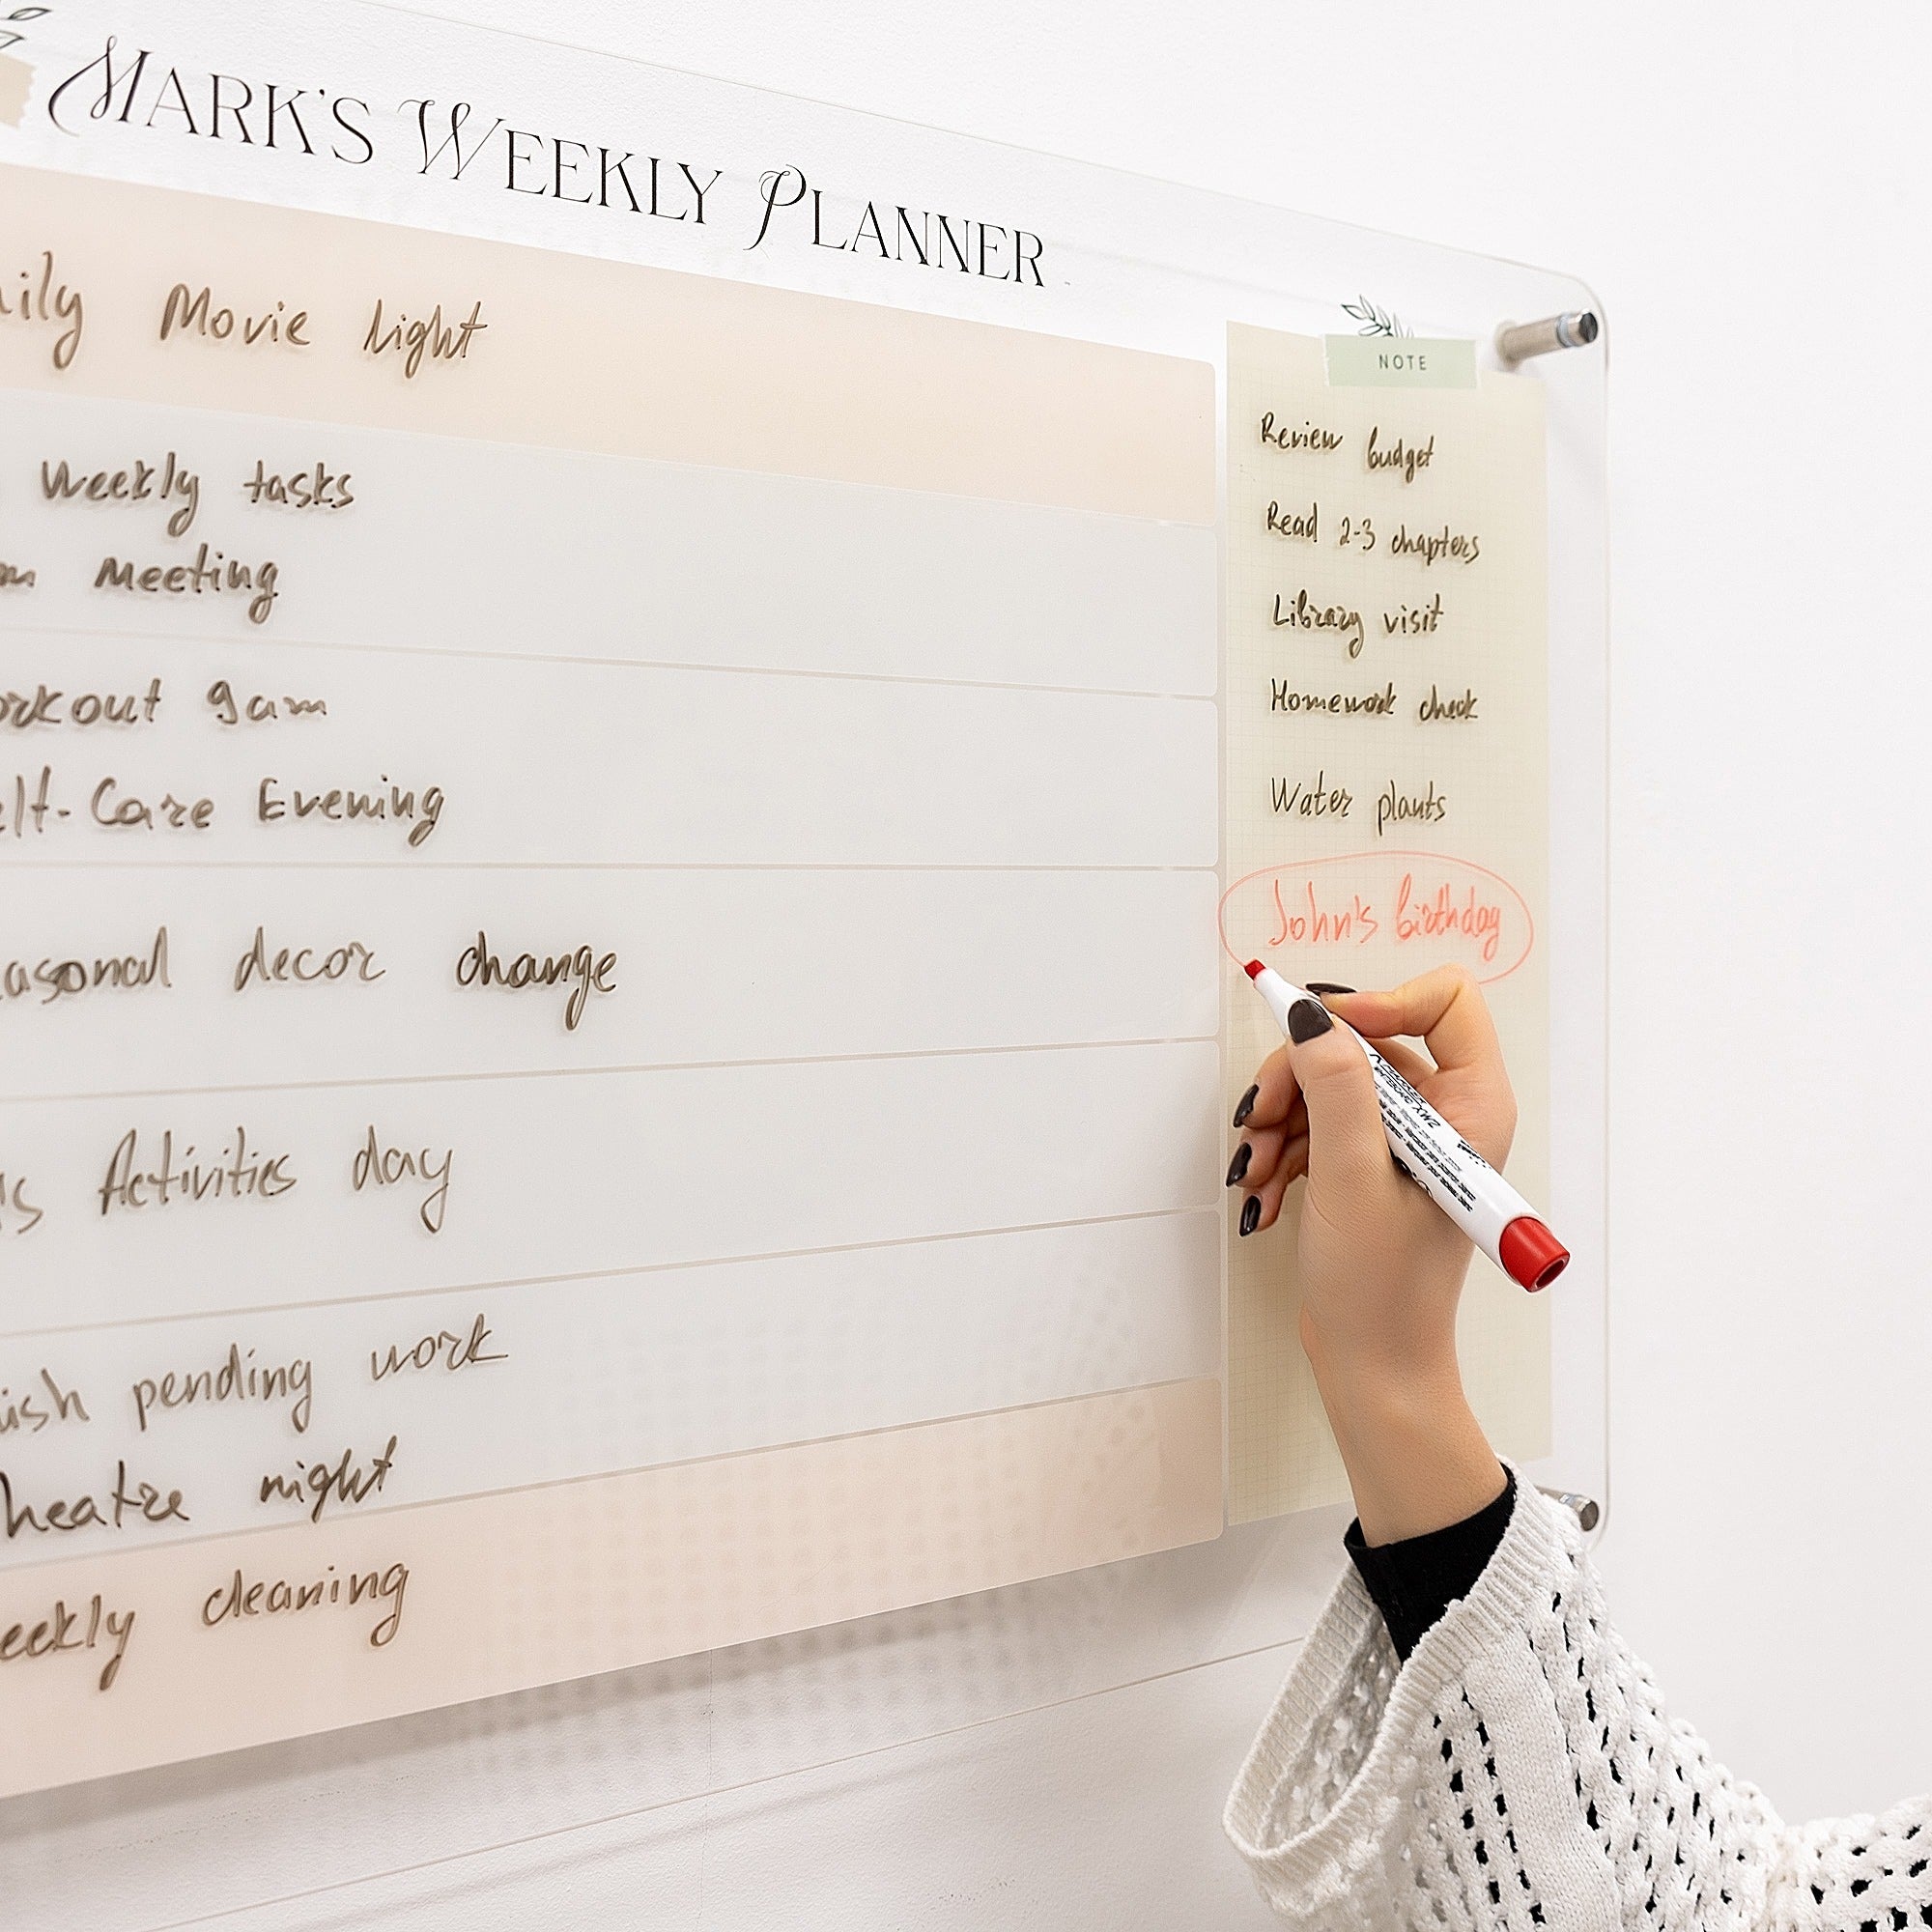 MARK'S WEEKLY PLANNER
ily Movie Light
Weekly tasks
m Meeting
orkout 9am
elf-Care Evening
easonal decor change
's Activities day
ish pending work
heatre night
eekly cleaning
NOTE
Review budget
Read 2-3 chapters
Library visit
Homework check
Water plants
John's birthday